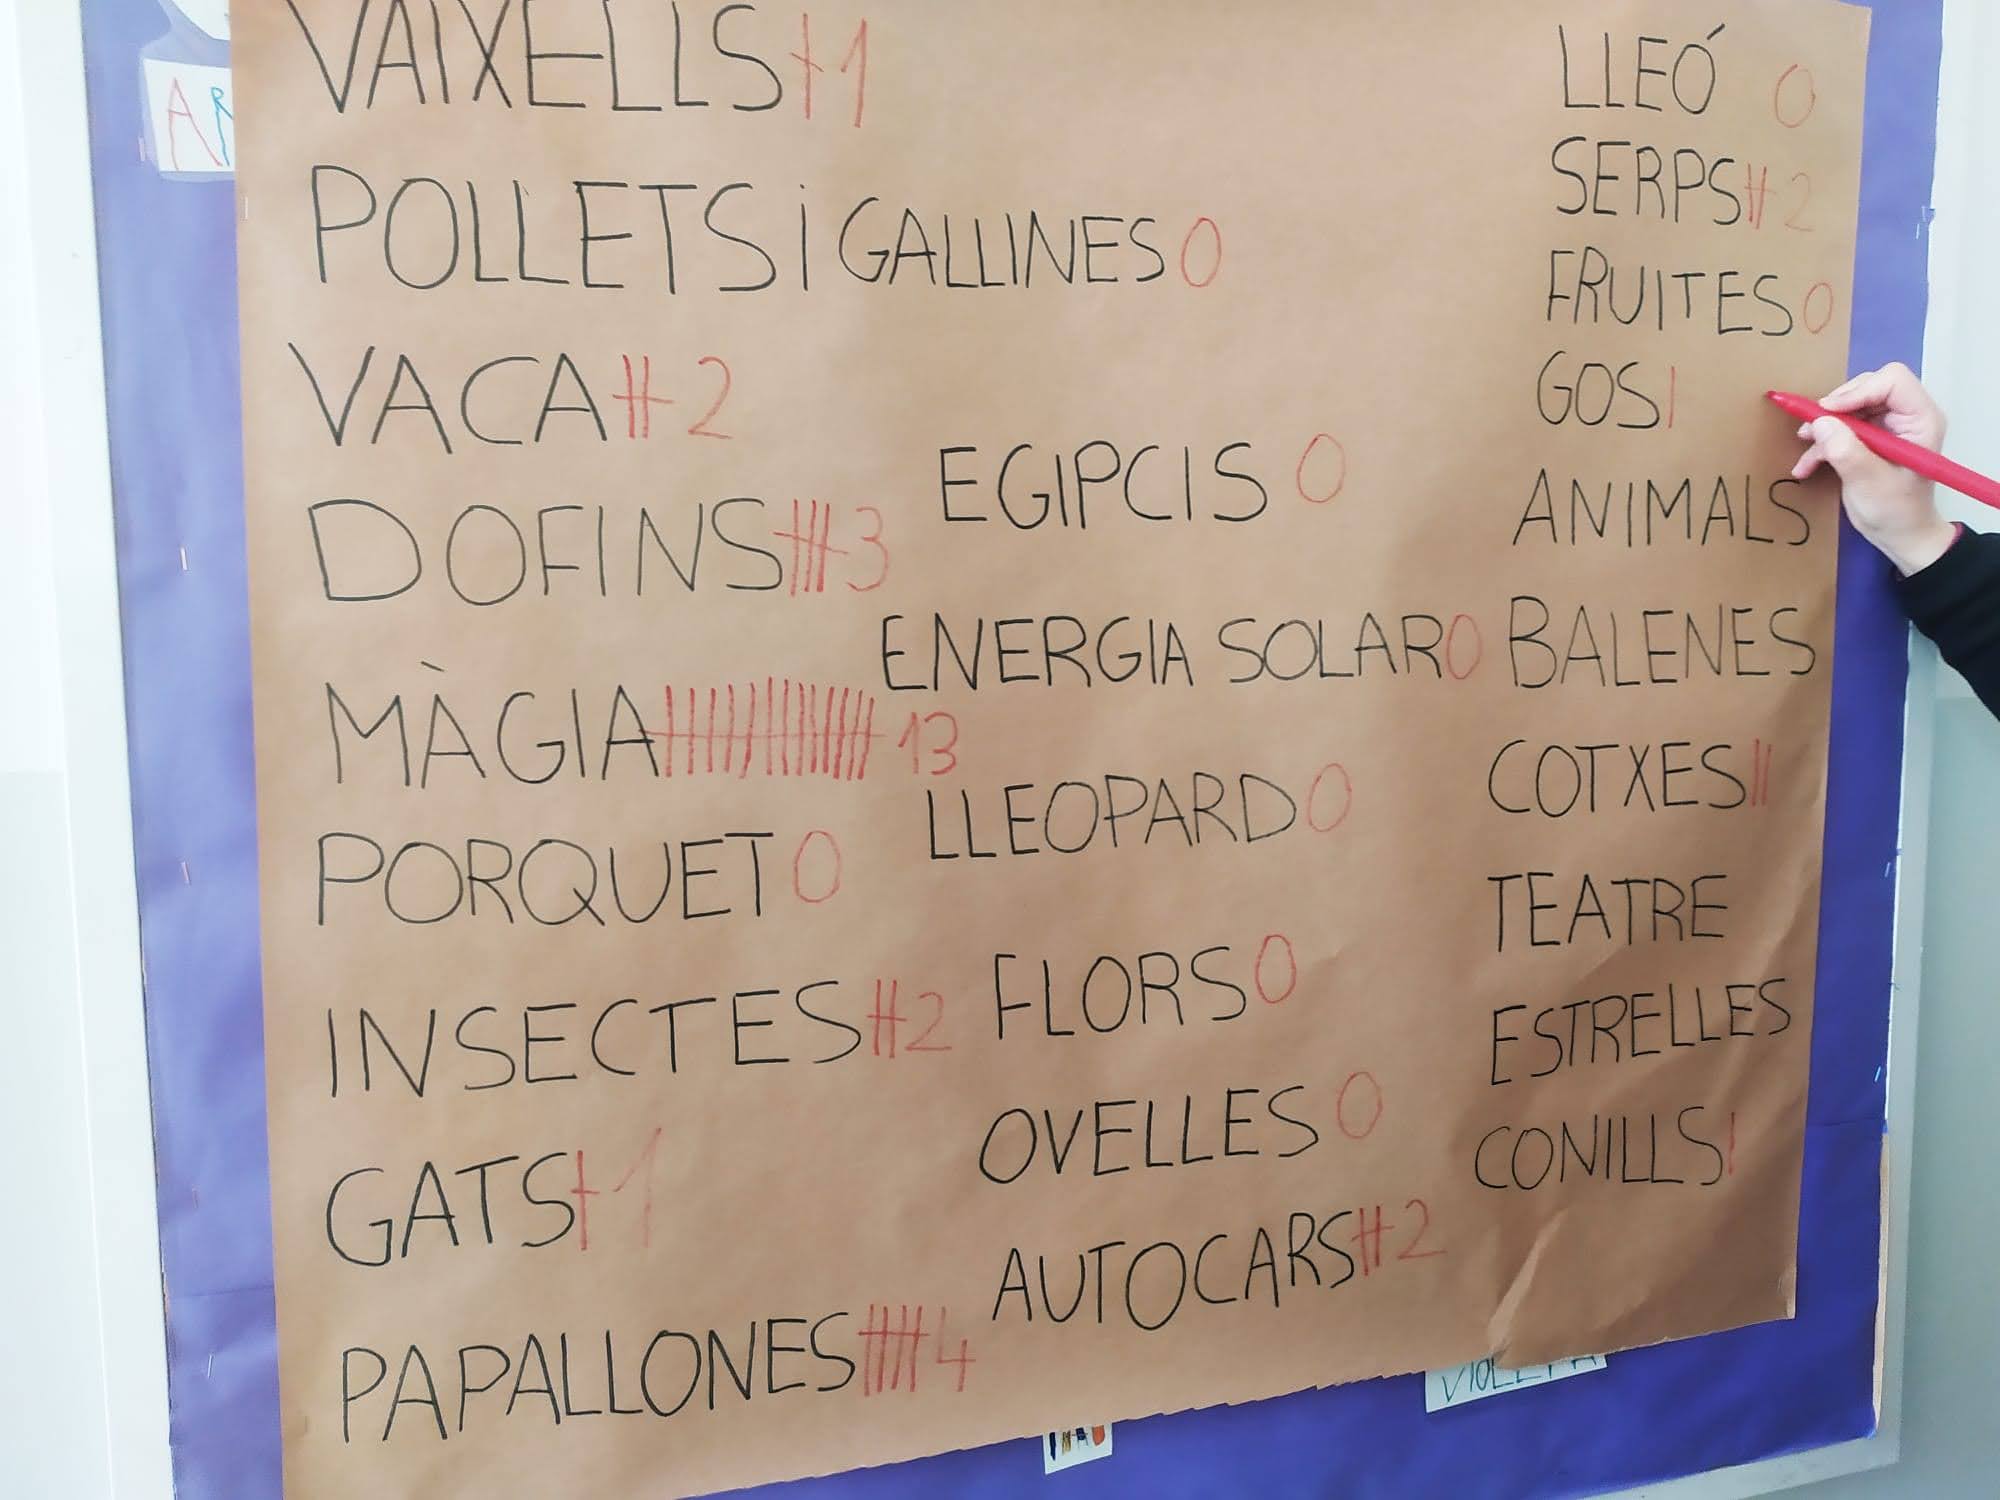 VAIXELLS 1
POLLETS i GALLINES 0
VACA 2
DOFINS 3
MÀGIA 13
PORQUET 0
INSECTES 2
GATS 1
PAPALLONES 4
EGIPCIS 0
ENERGIA SOLAR 0
LLEOPARD 0
FLORS 0
OVELLES 0
AUTOCARS 2
LLEÓ 0
SERPS 2
FRUITES 0
GOS
ANIMALS
BALENES
COTXES
TEATRE
ESTRELLES
CONILLS